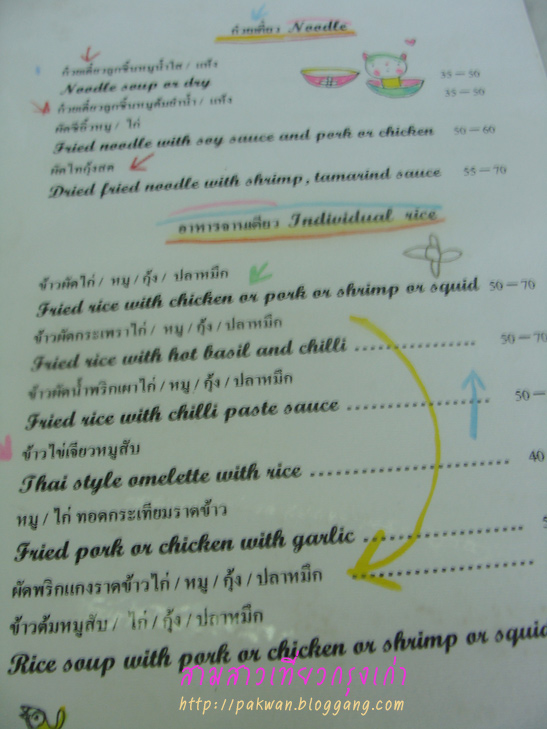 ก๋วยเตี๋ยว Noodle
ก๋วยเตี๋ยวลูกชิ้นหมูน้ำใส / แห้ง
Noodle soup or dry 35 – 50
ก๋วยเตี๋ยวลูกชิ้นหมูต้มยำน้ำ / แห้ง 35 – 50
ผัดซีอิ๊วหมู / ไก่
Fried noodle with soy sauce and pork or chicken 50 – 60
ผัดไทกุ้งสด
Dried fried noodle with shrimp, tamarind sauce 55 – 70
อาหารจานเดียว Individual rice
ข้าวผัดไก่ / หมู / กุ้ง / ปลาหมึก
Fried rice with chicken or pork or shrimp or squid 50 – 70
ข้าวผัดกระเพราไก่ / หมู / กุ้ง / ปลาหมึก
Fried rice with hot basil and chilli ................ 50 – 70
ข้าวผัดน้ำพริกเผาไก่ / หมู / กุ้ง / ปลาหมึก
Fried rice with chilli paste sauce ................... 50 –
ข้าวไข่เจียวหมูสับ
Thai style omelette with rice ......................... 40
หมู / ไก่ ทอดกระเทียมราดข้าว
Fried pork or chicken with garlic ....................
ผัดพริกแกงราดข้าวไก่ / หมู / กุ้ง / ปลาหมึก .......................
ข้าวต้มหมูสับ / ไก่ / กุ้ง / ปลาหมึก
Rice soup with pork or chicken or shrimp or squid
สามสาวเที่ยวกรุงเก่า
http://pakwan.bloggang.com